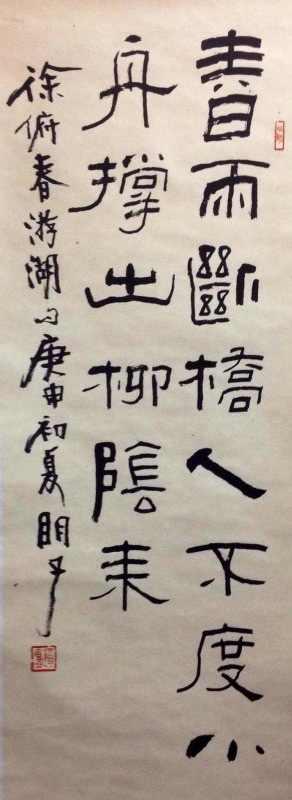 春雨斷橋人不度小
舟撐出柳陰来
徐俯春游湖句庚申初夏明